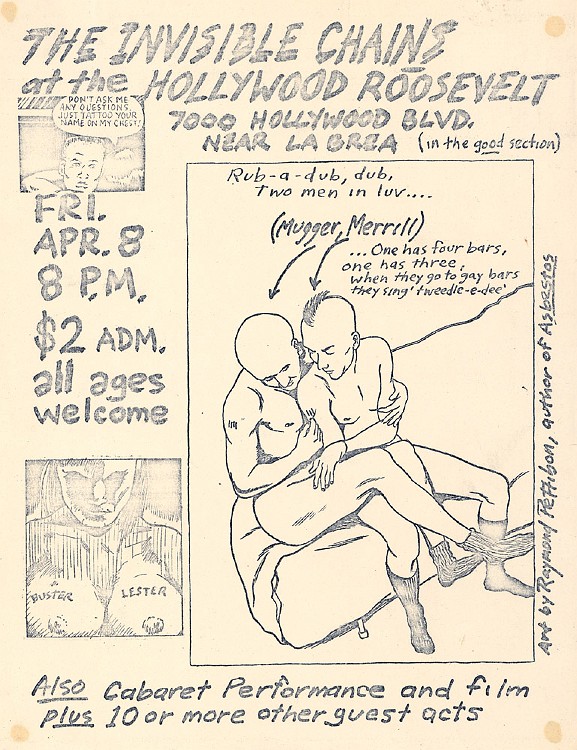 THE INVISIBLE CHAINS
at the HOLLYWOOD ROOSEVELT
7000 HOLLYWOOD BLVD.
NEAR LA BREA (in the good section)
DON'T ASK ME
ANY QUESTIONS.
JUST TATTOO YOUR
NAME ON MY CHEST!
FRI.
APR. 8
8 P.M.
$2 ADM.
all ages
welcome
Rub-a-dub, dub,
Two men in luv....
(Mugger, Merrill)
...One has four bars,
one has three,
when they go to gay bars
they sing 'tweedle-e-dee'
BUSTER
LESTER
Art by Raymond Pettibon, author of Asbestos
Also Cabaret Performance and film
plus 10 or more other guest acts